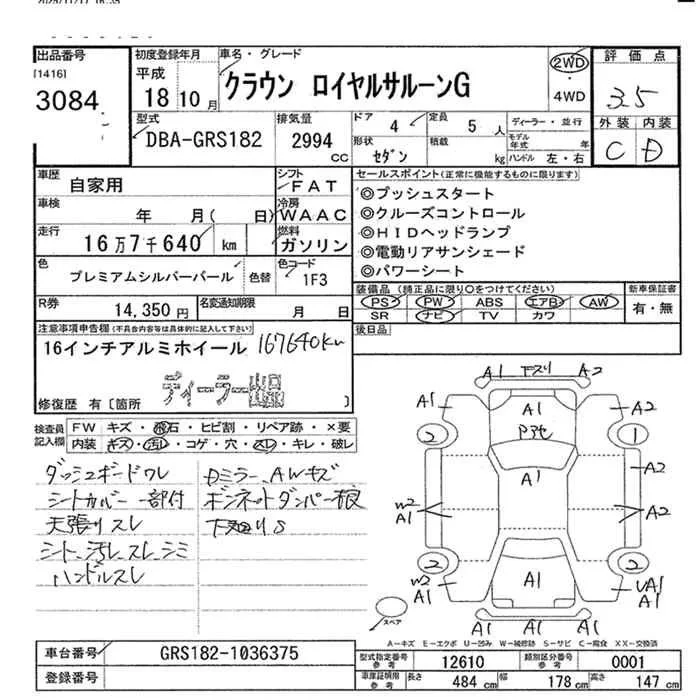 出品番号
[1416]
3084
初度登録年月
平成
18 10 月
車名・グレード
クラウン ロイヤルサルーンG
2WD
・
4WD
評価点
3.5
外装 内装
C D
型式
DBA-GRS182
排気量
2994
CC
ドア
4
定員
5 人
形状
セダン
積載
kg
ディーラー・並行
モデル
年式 年
ハンドル 左・右
車歴
自家用
シフト
FAT
車検
年 月( 日)
冷房
WAAC
走行
16万7千640 km
燃料
ガソリン
色
プレミアムシルバーパール
色替
色コード
1F3
R券
14,350 円
名変通知期限
月 日
セールスポイント(正常に機能するものに限ります)
◎プッシュスタート
◎クルーズコントロール
◎HIDヘッドランプ
◎電動リアサンシェード
◎パワーシート
装備品 (純正品に限り○をつけてください)
PS PW ABS エアB AW
SR ナビ TV カワ
新車保証書
有・無
後日品
注意事項申告欄(不具合内容等は具体的に記入して下さい)
16インチアルミホイール 167640km
ディーラー出品
修復歴 有〔箇所 〕
検査員
記入欄
FW キズ・飛石・ヒビ割・リペア跡・×要
内装 キズ・汚レ・コゲ・穴・スレ・キレ・破レ
ダッシュボードワレ
シートカバー一部付
天張りスレ
シート汚レ、スレ、シミ
ハンドルスレ
Dミラー、AWキズ
ボンネットダンパー
下廻りS
A1 下スリ A2
A1 A1 A2
2 1
A1
A2
W2
A1
A2
2 2
W2
A1
A1
UA1
A1
A1 A1 A1
スペア
A-キズ E-エクボ U-凹み W-補修跡 S-サビ C-腐食 XX-交換済
車台番号
GRS182-1036375
登録番号
型式指定番号
参考
12610
類別区分番号
参考
0001
車庫証明用
参考
長さ
484 cm
幅
178 cm
高さ
147 cm